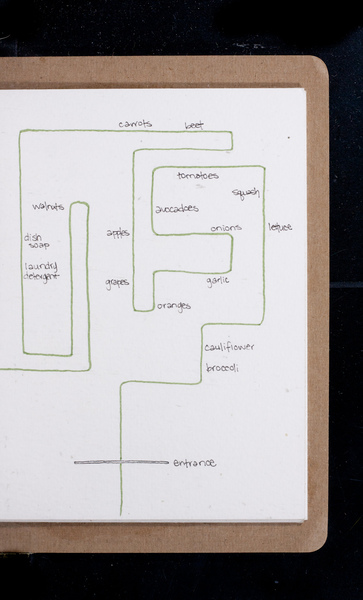 carrots beet
tomatoes
squash
walnuts
avocadoes
onions
letuce
apples
dish
soap
laundry
detergent
grapes
garlic
oranges
cauliflower
broccoli
entrance